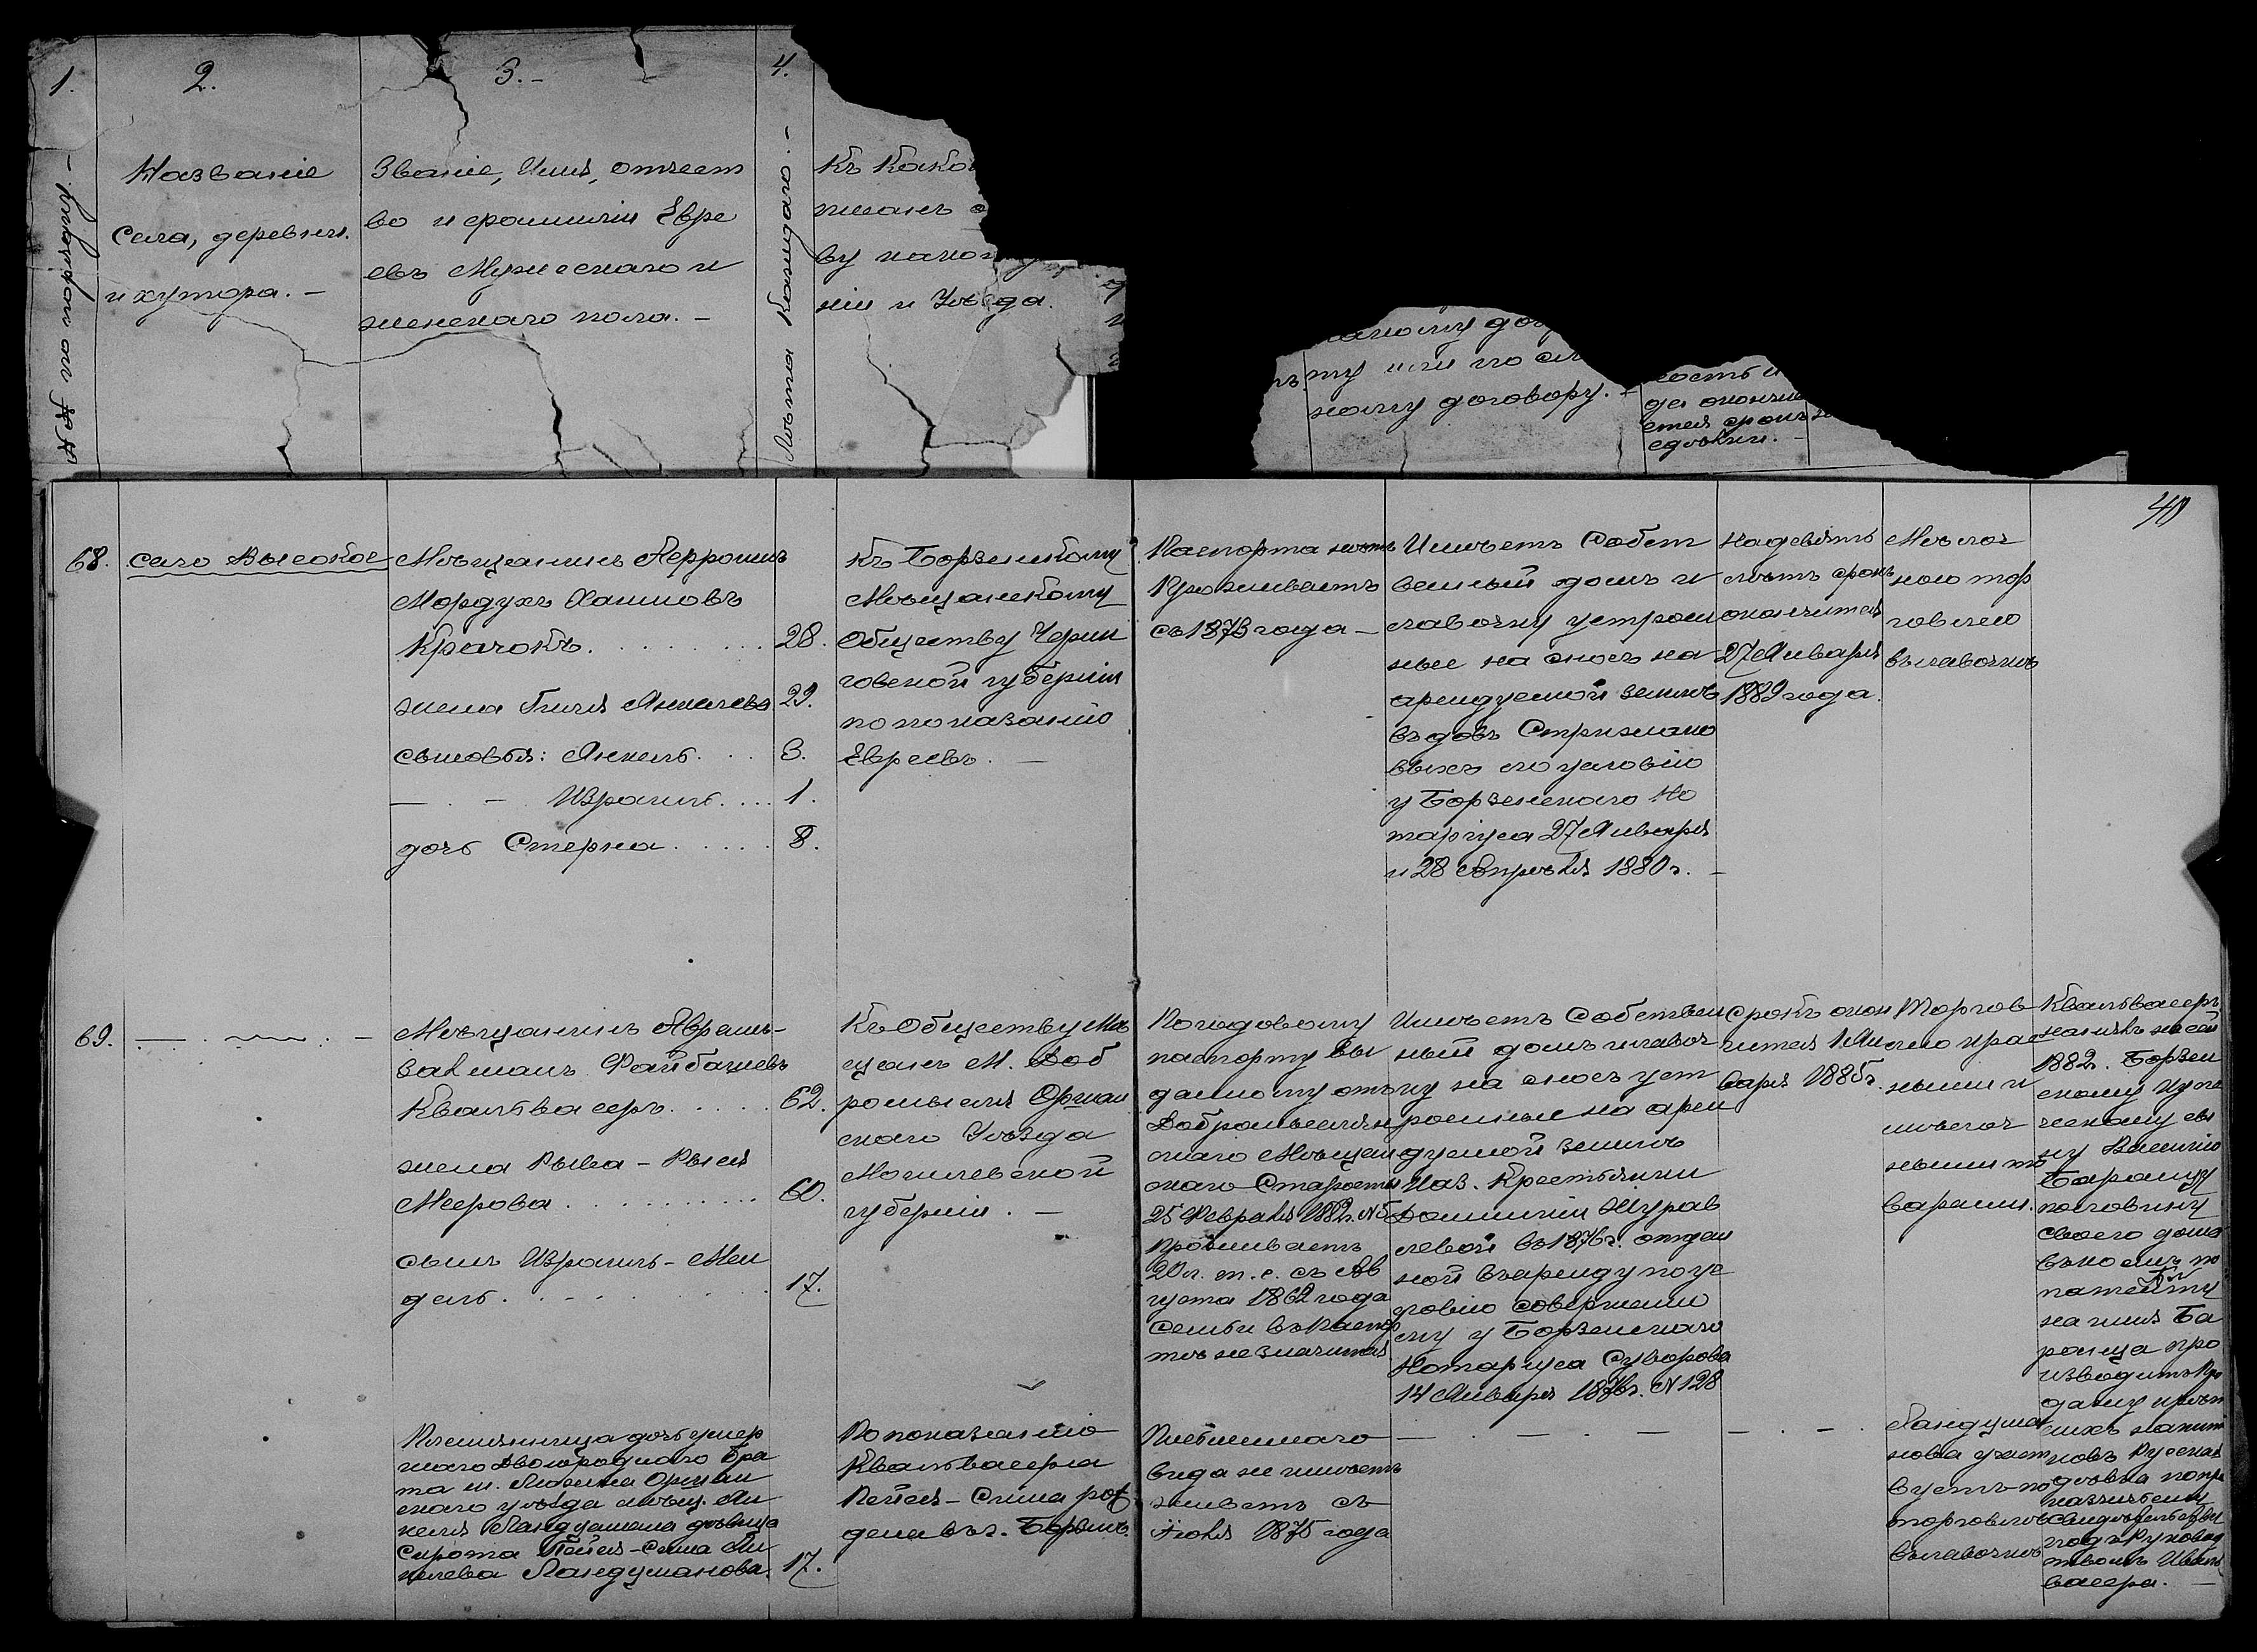 1.
2.
3.-
4.
№№ по порядку.-
Названіе
села, деревни
и хутора.-
Званіе, Имя, отчест
во и фамиліи Евре
евъ Мужескаго и
женскаго пола.-
Лѣта каждаго.-
Къ како
писанъ
ву како
ніи и Уѣзда.
ту или по сл
ному договору.-
ность и
да оконч
ется срокъ
сдѣлки.-
40
68.
село Высокое
Мѣщанинъ
Мордухъ Хаимовъ
Крачокъ . . . . . . . . 28.
жена Гиля Янкелева 29.
сыновья: Янкель . . . 3.
— . — Израиль . . . 1.
дочь Стерна . . . . . 8.
Къ Борзенскому
Мѣщанскому
Обществу Черни
говской губерніи
по показанію
Евреевъ. —
Паспорта нѣтъ
Проживаетъ
съ 1873 года —
Имѣетъ Собст
венный домъ и
лавочку устроен
ные на сносъ на
арендуемой землѣ
вдовъ Стрижако
выхъ по условію
у Борзенскаго Но
таріуса 27 Января
и 28 Апрѣля 1880 г. —
На девять
лѣтъ срокъ
окончится
27 Января
1889 года.
Мѣлоч
ною тор
говлею
въ лавочкѣ
69.
Мѣщанинъ Абрамъ-
Залманъ Файбашевъ
Квальвассеръ . . . . . 62.
жена Рыва-Рыся
Меерова . . . . . . . . 60.
сынъ Израиль-Мен
дель . . . . . . . . 17.
Къ Обществу Мѣ
щанъ М. Доб
ромысля Оршан
скаго Уѣзда
Могилевской
губерніи. —
По годовому
паспорту вы
данному отъ
Добромыслян
скаго Мѣщан
скаго Старосты
25 Февраля 1882 г. № 5
Проживаетъ
20 л. т. е. съ Ав
густа 1862 года
Семьи въ Паспор
тѣ не значится
Имѣетъ Собствен
ный домъ и лавоч
ку на сносъ уст
роенные на арен
дуемой землѣ
Каз. Крестьянки
Домникіи Журав
левой въ 1876 г. отдан
ной въ аренду по ус
ловію совершенно
му у Борзенскаго
Нотаріуса Суворова
14 Января 1876 г. № 128
Срокъ окон
чится 1 Ян
варя 1885 г.
Торгов
лею крас
ными и
мѣлоч
ными то
варами.
Квальвассеръ
1882 г. Борзен
скому купе
ческому сы
ну
Баранцу
половину
своего дома
въ коемъ по
патенту
на имя Ба
ранца про
изводитъ Про
дажу крѣп
кихъ напит
ковъ Русская
дѣвка
подъ Руковод
ствомъ Кваль
вассера. —
Племянница дочь умер
шаго двоюроднаго бра
та м. Любавича Оршан
скаго уѣзда мѣщ. Ян
келя Ландумана дѣвица
Сирота Пейся-Сима Ян
келева Ландуманова. 17.
По показанію
Квальвассера
Пейся-Сима рож
дена въ г. Борзнѣ.
Письменнаго
вида не имѣетъ
живетъ съ
Іюля 1875 года
Ландума
нова участ
вуетъ по
торговлѣ
въ лавочкѣ